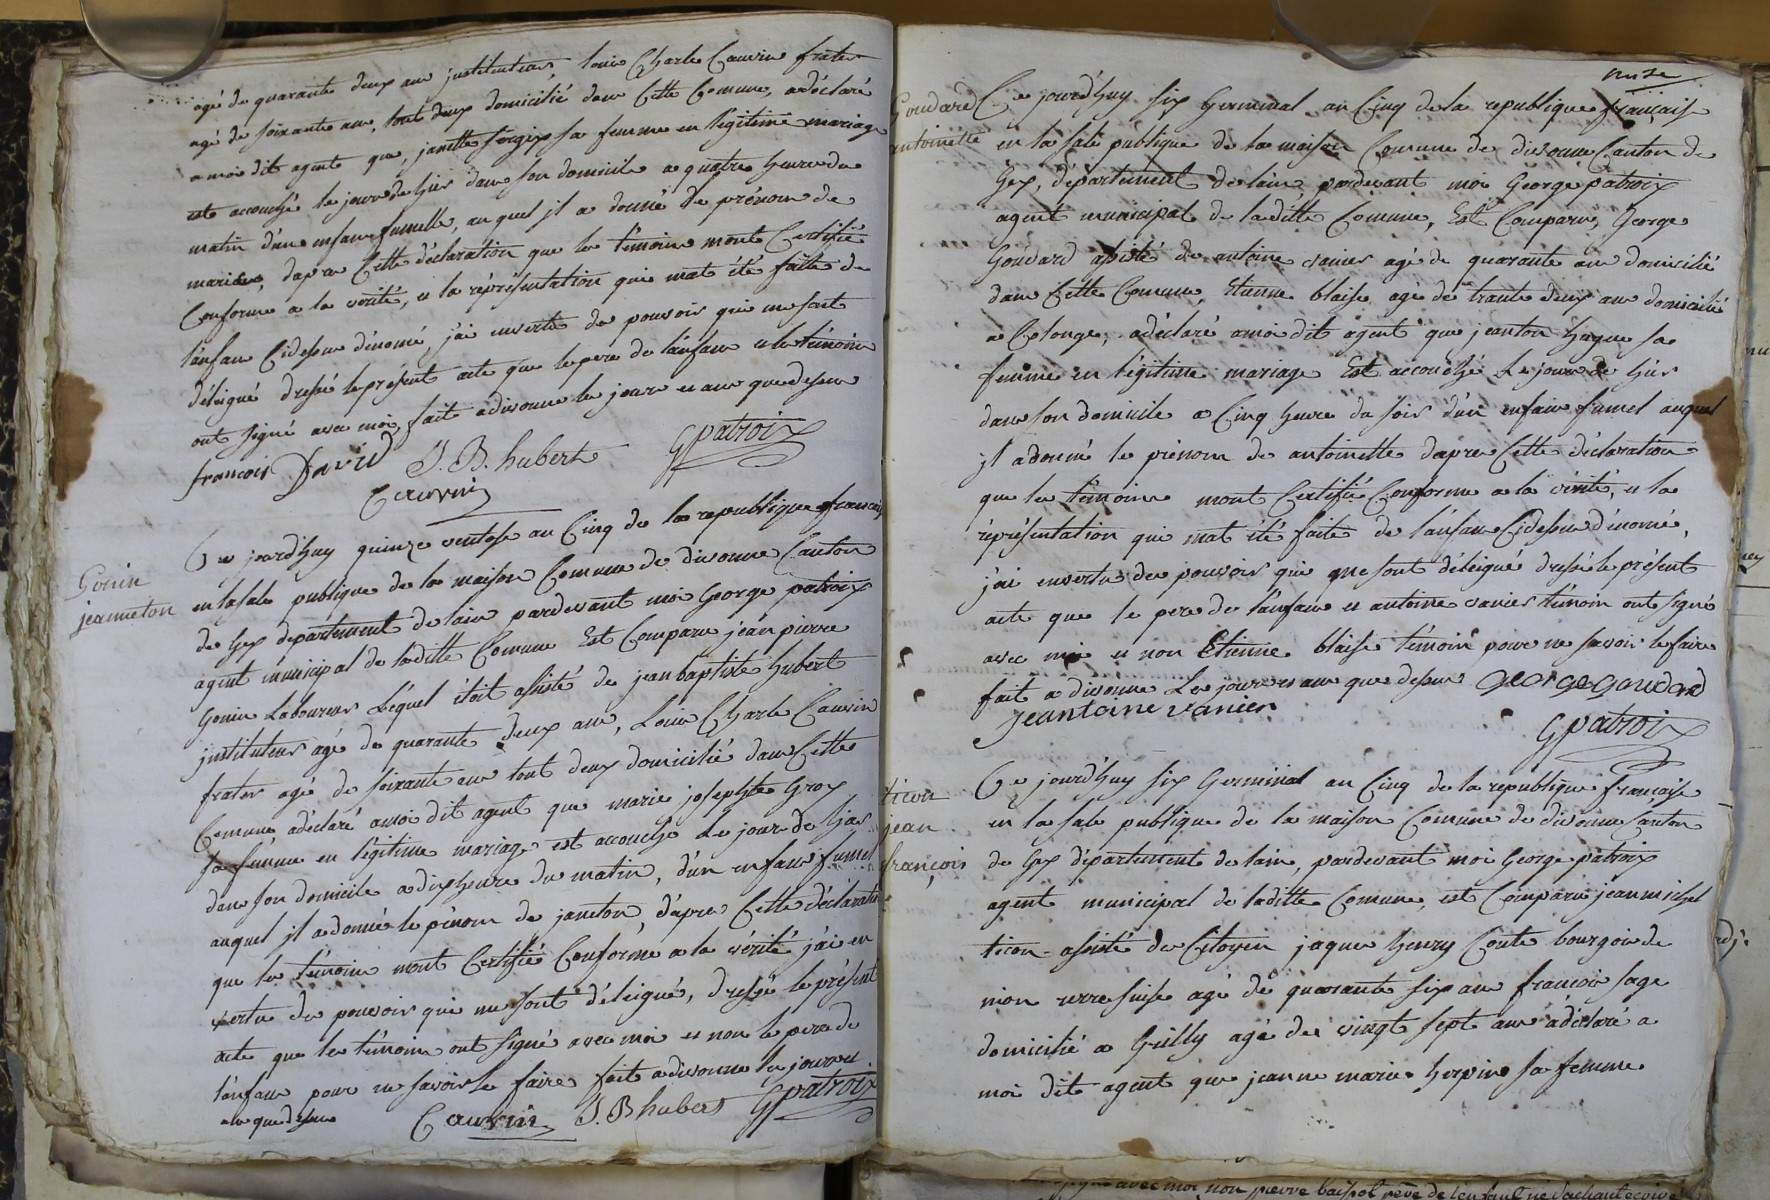 agé de quarante deux ans jnstituteur, louis Charle Cauvin frater
agé de soixante ans, tout deux domicilié dans Cette Comune, adéclaré
a moi dit agent que, janette sa femme en légitime mariage
est accouché le jour de hiér dans son domicile a quatre heure du
matin d'un enfans fumelle, auquel jl a donné le prénom de
daprès Cette déclaration que les témoins mont Certifié
Conforme a la verité, et la réprésentation qui mat été faitte de
lanfans Cidessu dénomé, j'ai envertu de pouvoir qui me sont
déleigué dressé le présent acte que le pere de lanfans et les témoins
ont signé avec moi, fait adivonne le jour et ans que dessu
francois David J. B. hubert Gpatroix
Cauvin
Gonin
jeanneton
Ce jourd'huy quinze ventose an Cinq de la republique francais
en la sale publique de la maison Comune de divonne Canton
de Gex département de lain pardevant moi George patroix
agent municipal de laditte Comune Est Comparu jean pierre
Gonin Laboureur Léquel étoit assisté de jean baptiste hubert
jnstituteur agé de quarante deux ans, Louis Charle Cauvin
frater agé de soixante ans tout deux domicilié dans Cette
Comune adéclaré amoi dit agent que marie josephte Gros
sa femme en légitime mariage est accouché Le jour de hiér
dans son domicile a dix heure du matin, d'un enfans fumel
auquel jl adonné le pénom de janeton, d'apres Cette déclaration
que les témoins mont Certifié Conforme a la vérité j'ai en
vertu du pouvoir qui me sont déleigué, dressé le présent
acte que les témoins ont signé avec moi et non le pere de
lanfans pour ne savoir le faire fait adivonne le jour et
ans que dessu Cauvin J. B hubert Gpatroix
onze
Goudard
antoinette
Ce jourd'huy six Germinal an Cinq de la republique français
en la sale publique de la maison Comune de divonne Canton de
Gex, département de lain pardevant moi George patroix
agent municipal de laditte Comune, Est Comparu, George
Goudard assisté de antoine vanier agé de quarante ans domicilié
dans Cette Comune, Etienne blaise agé de trante deux ans domicilié
a Colonge, adéclaré amoi dit agent que jeanton sa
femme en légitime mariage Est accouché Le jour de hiér
dans son domicile a Cinq heure du soir d'un enfans fumel auquel
jl adonné le prénom de antoinette dapres Cette déclaration
que les témoins mont Certifié Conforme a la vérité, et la
réprésentation qui mat été faite de l'anfans Cidessu dénomé,
j'ai envertu des pouvoir qui me sont déleigué dressé le présent
acte que le pere de l'anfans et antoine vanier témoin ont signé
avec moi et non Etienne blaise témoin pour ne savoir le faire
fait a divonne Le jour et ans que dessu George goudard
jeantoine vanier
Gpatroix
ticon
jean
françois
Ce jourd'huy six Germinal an Cinq de la republique Française
en la sale publique de la maison Comune de divonne Canton
de Gex département de lain, pardevant moi George patroix
agent municipal de laditte Comune, est Comparu jean michel
ticon assisté du Citoyen jaque henry Conte bourgois de
nion suise agé de quarante six ans francois sage
domicilié a Grilly agé de vingt sept ans adéclaré a
moi dit agent que jeanne marie sa femme
avec moi non pierre baissot père de lenfant ne sachant écrire